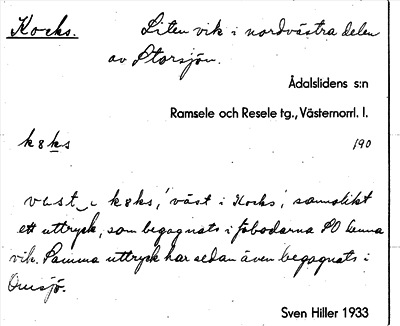 Kocks. Liten vik i nordvästra delen
av Storsjön.
Ådalslidens s:n
Ramsele och Resele tg., Västernorrl. l.
køks 190
väst i køks, 'väst i Kocks', sannolikt
ett uttryck, som begagnats i fäbodarna SO denna
vik. Samma uttryck har sedan även begagnats i
Omsjö.
Sven Hiller 1933